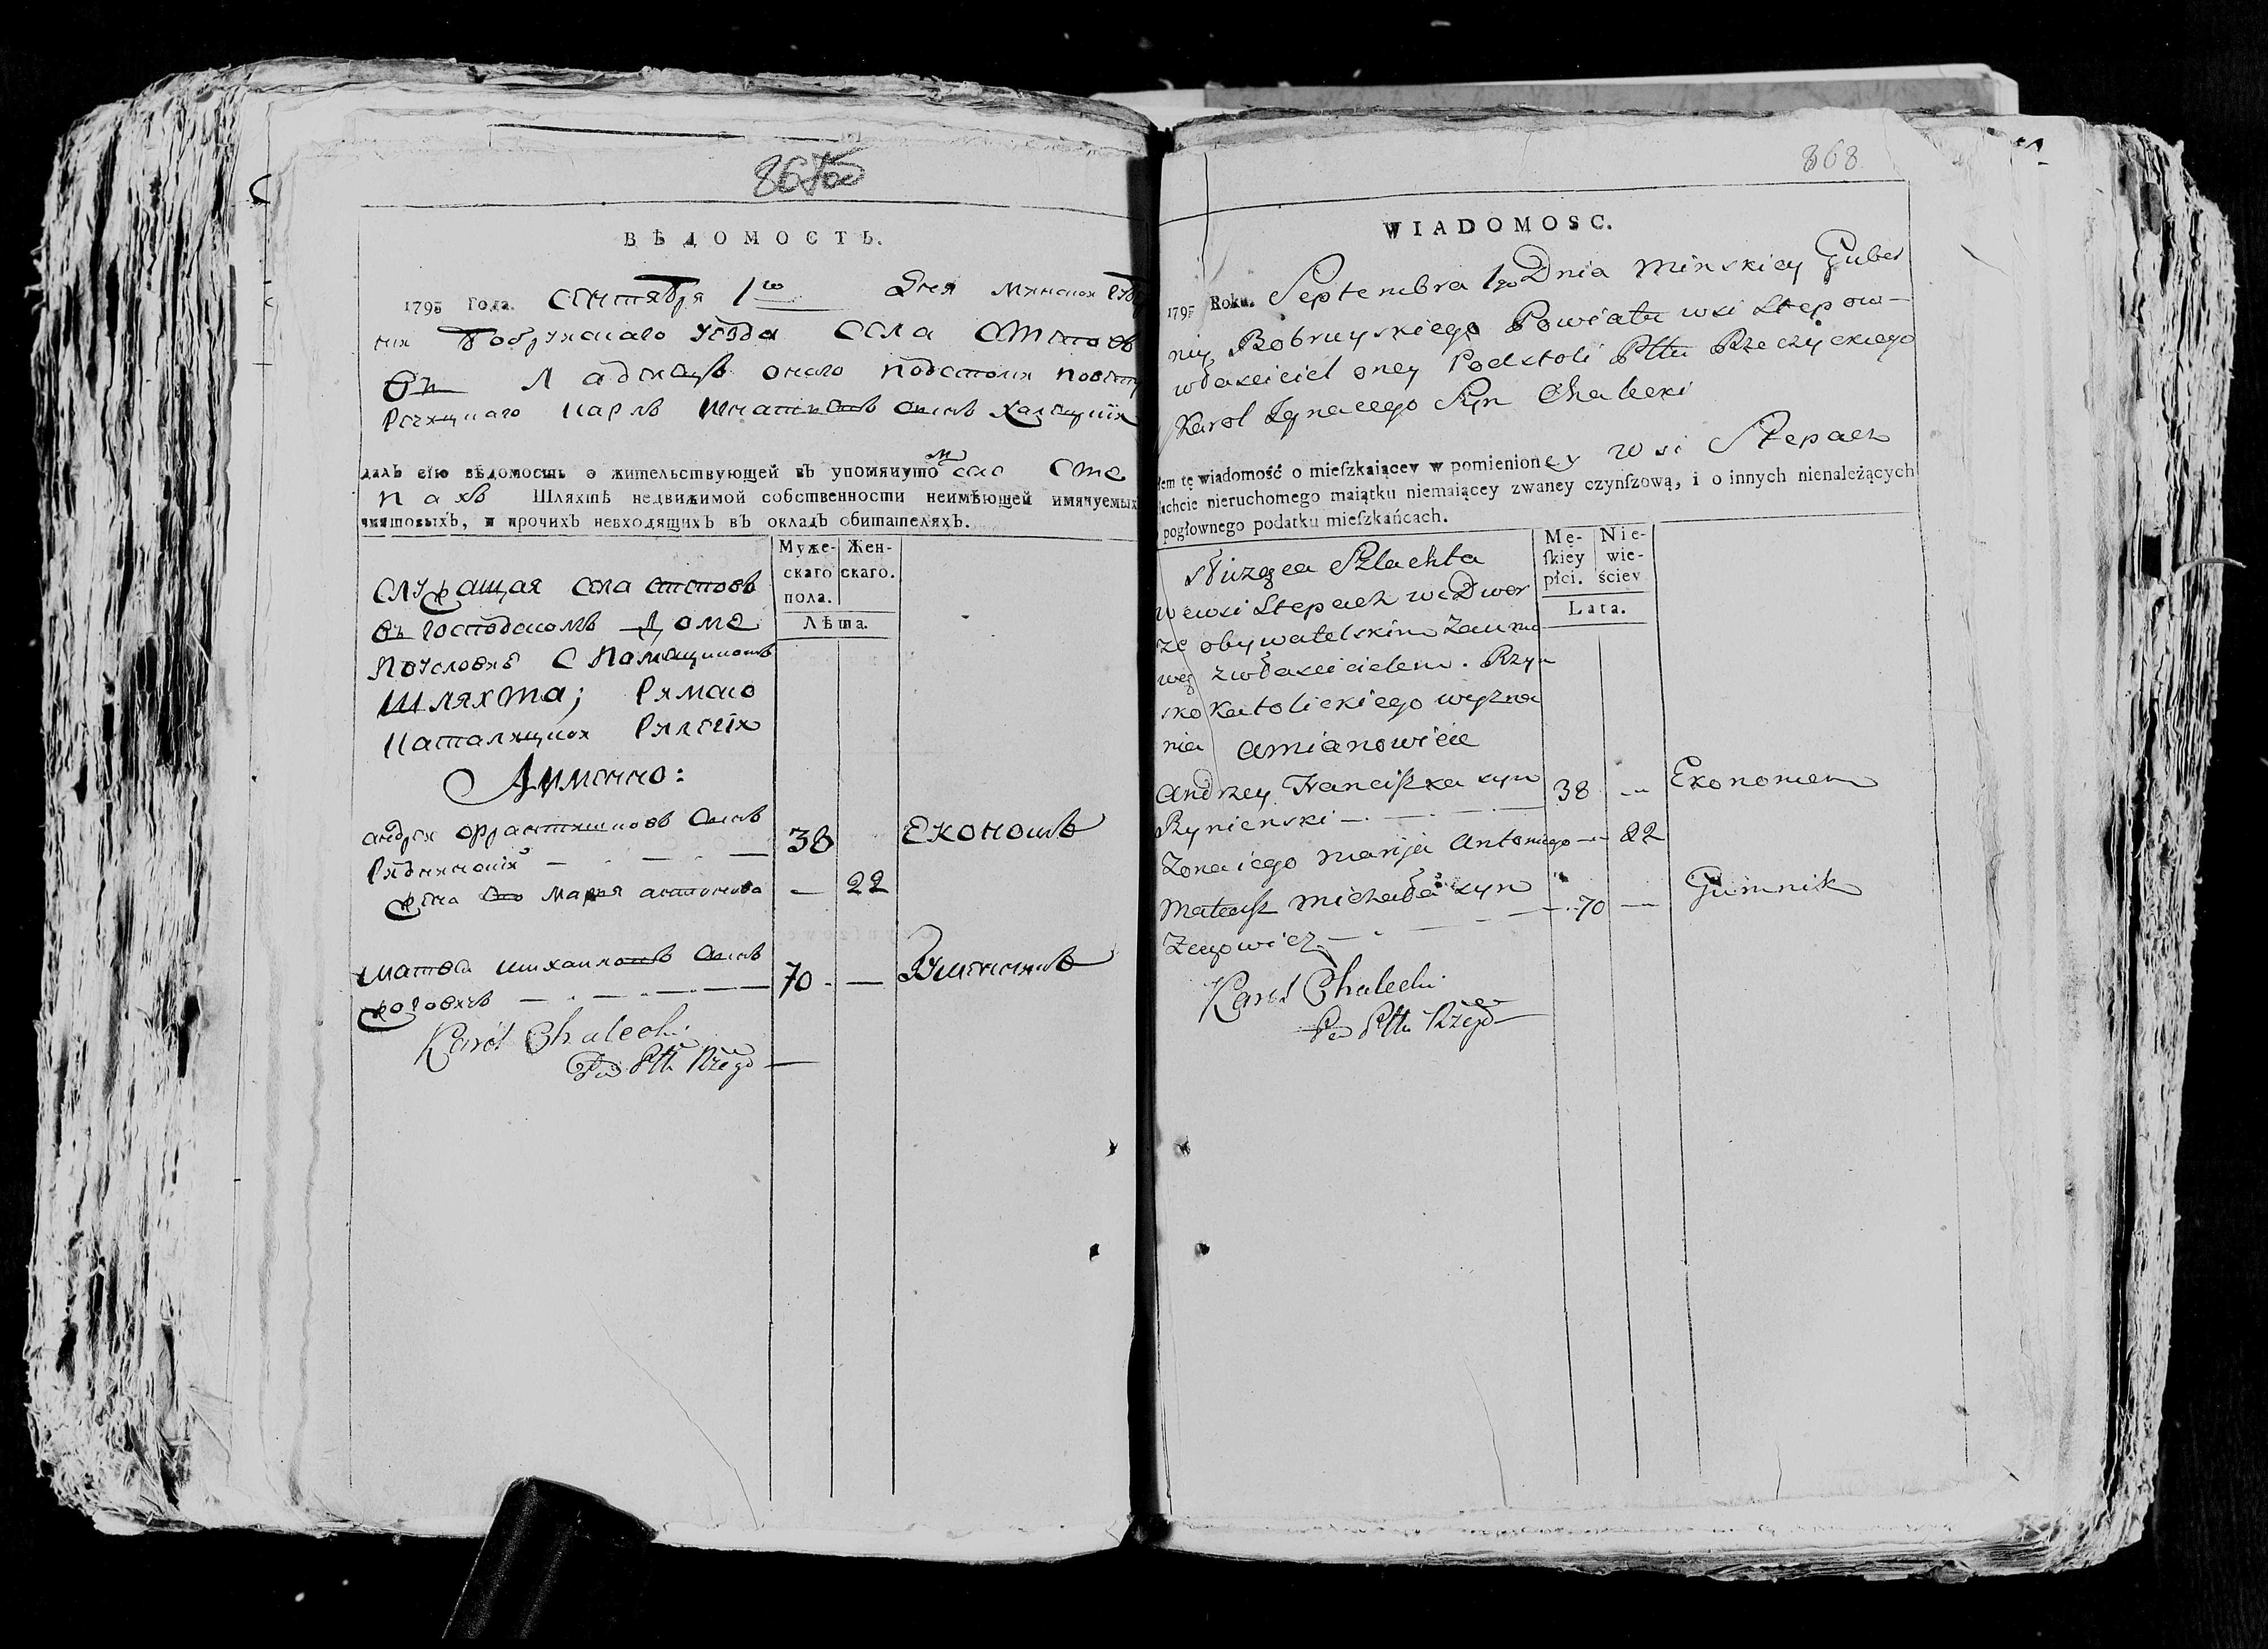 ВѢДОМОСТЬ.
1795 Года. Сентября 1го Дня Минской Губер
нии Бобруйскаго уезда села Степовъ
Владелецъ онаго подстолий повету
Речицкаго Карлъ Игнатиевъ сынъ Халецкий
далъ сїю вѣдомость о жительствующей въ упомянутомъ селе Сте
пахъ Шляхтѣ недвижимой собственности неимѣющей имянуемыхъ
чиншовыхъ, и прочихъ невходящихъ въ окладъ обитателяхъ.
Муже- Жен-
скаго скаго.
пола.
Лѣта.
Служащая села степовъ
въ господскомъ Доме
по условию с помещикомъ
Шляхта; Римско
Католицкой Религии
А имянно:
Андрей Францишковъ сынъ 38 Економъ
жена его Марья антонова — 22
Матеей михаиловъ сынъ 70 —
Karol Chalecki
Pd Pttu Rzego
868
WIADOMOSC.
1795 Roku. Septembra 1go Dnia Minskiey Guber
nij, Bobruyskiego Powiatu wsi Stepow—
właściciel oney Podstoli Pttu Rzeczyckiego
Karol Ignacego Syn Chalecki
łem tę wiadomość o mieſzkaiącey w pomienioney wsi Stepach
lachcie nieruchomego maiątku niemaiącey zwaney czynſzową, i o innych nienależących
pogłownego podatku mieſzkańcach.
Mę- Nie-
ſkiey wie-
płci. ściey
Lata.
Służąca Szlachta
we wsi Stepach we Dwor
ze obywatelskim za umo
wą z właścicielem. Rzym
sko Katolickiego wyzna
nia a mianowicie
Andrzey Franciſzka syn 38 — Ekonomem
Rynienski
Zona iego Maryia Antoniego — 22
Mateuſz Michała syn 70 — Gumnik
Karol Chalecki
Pd Pttu Rzego